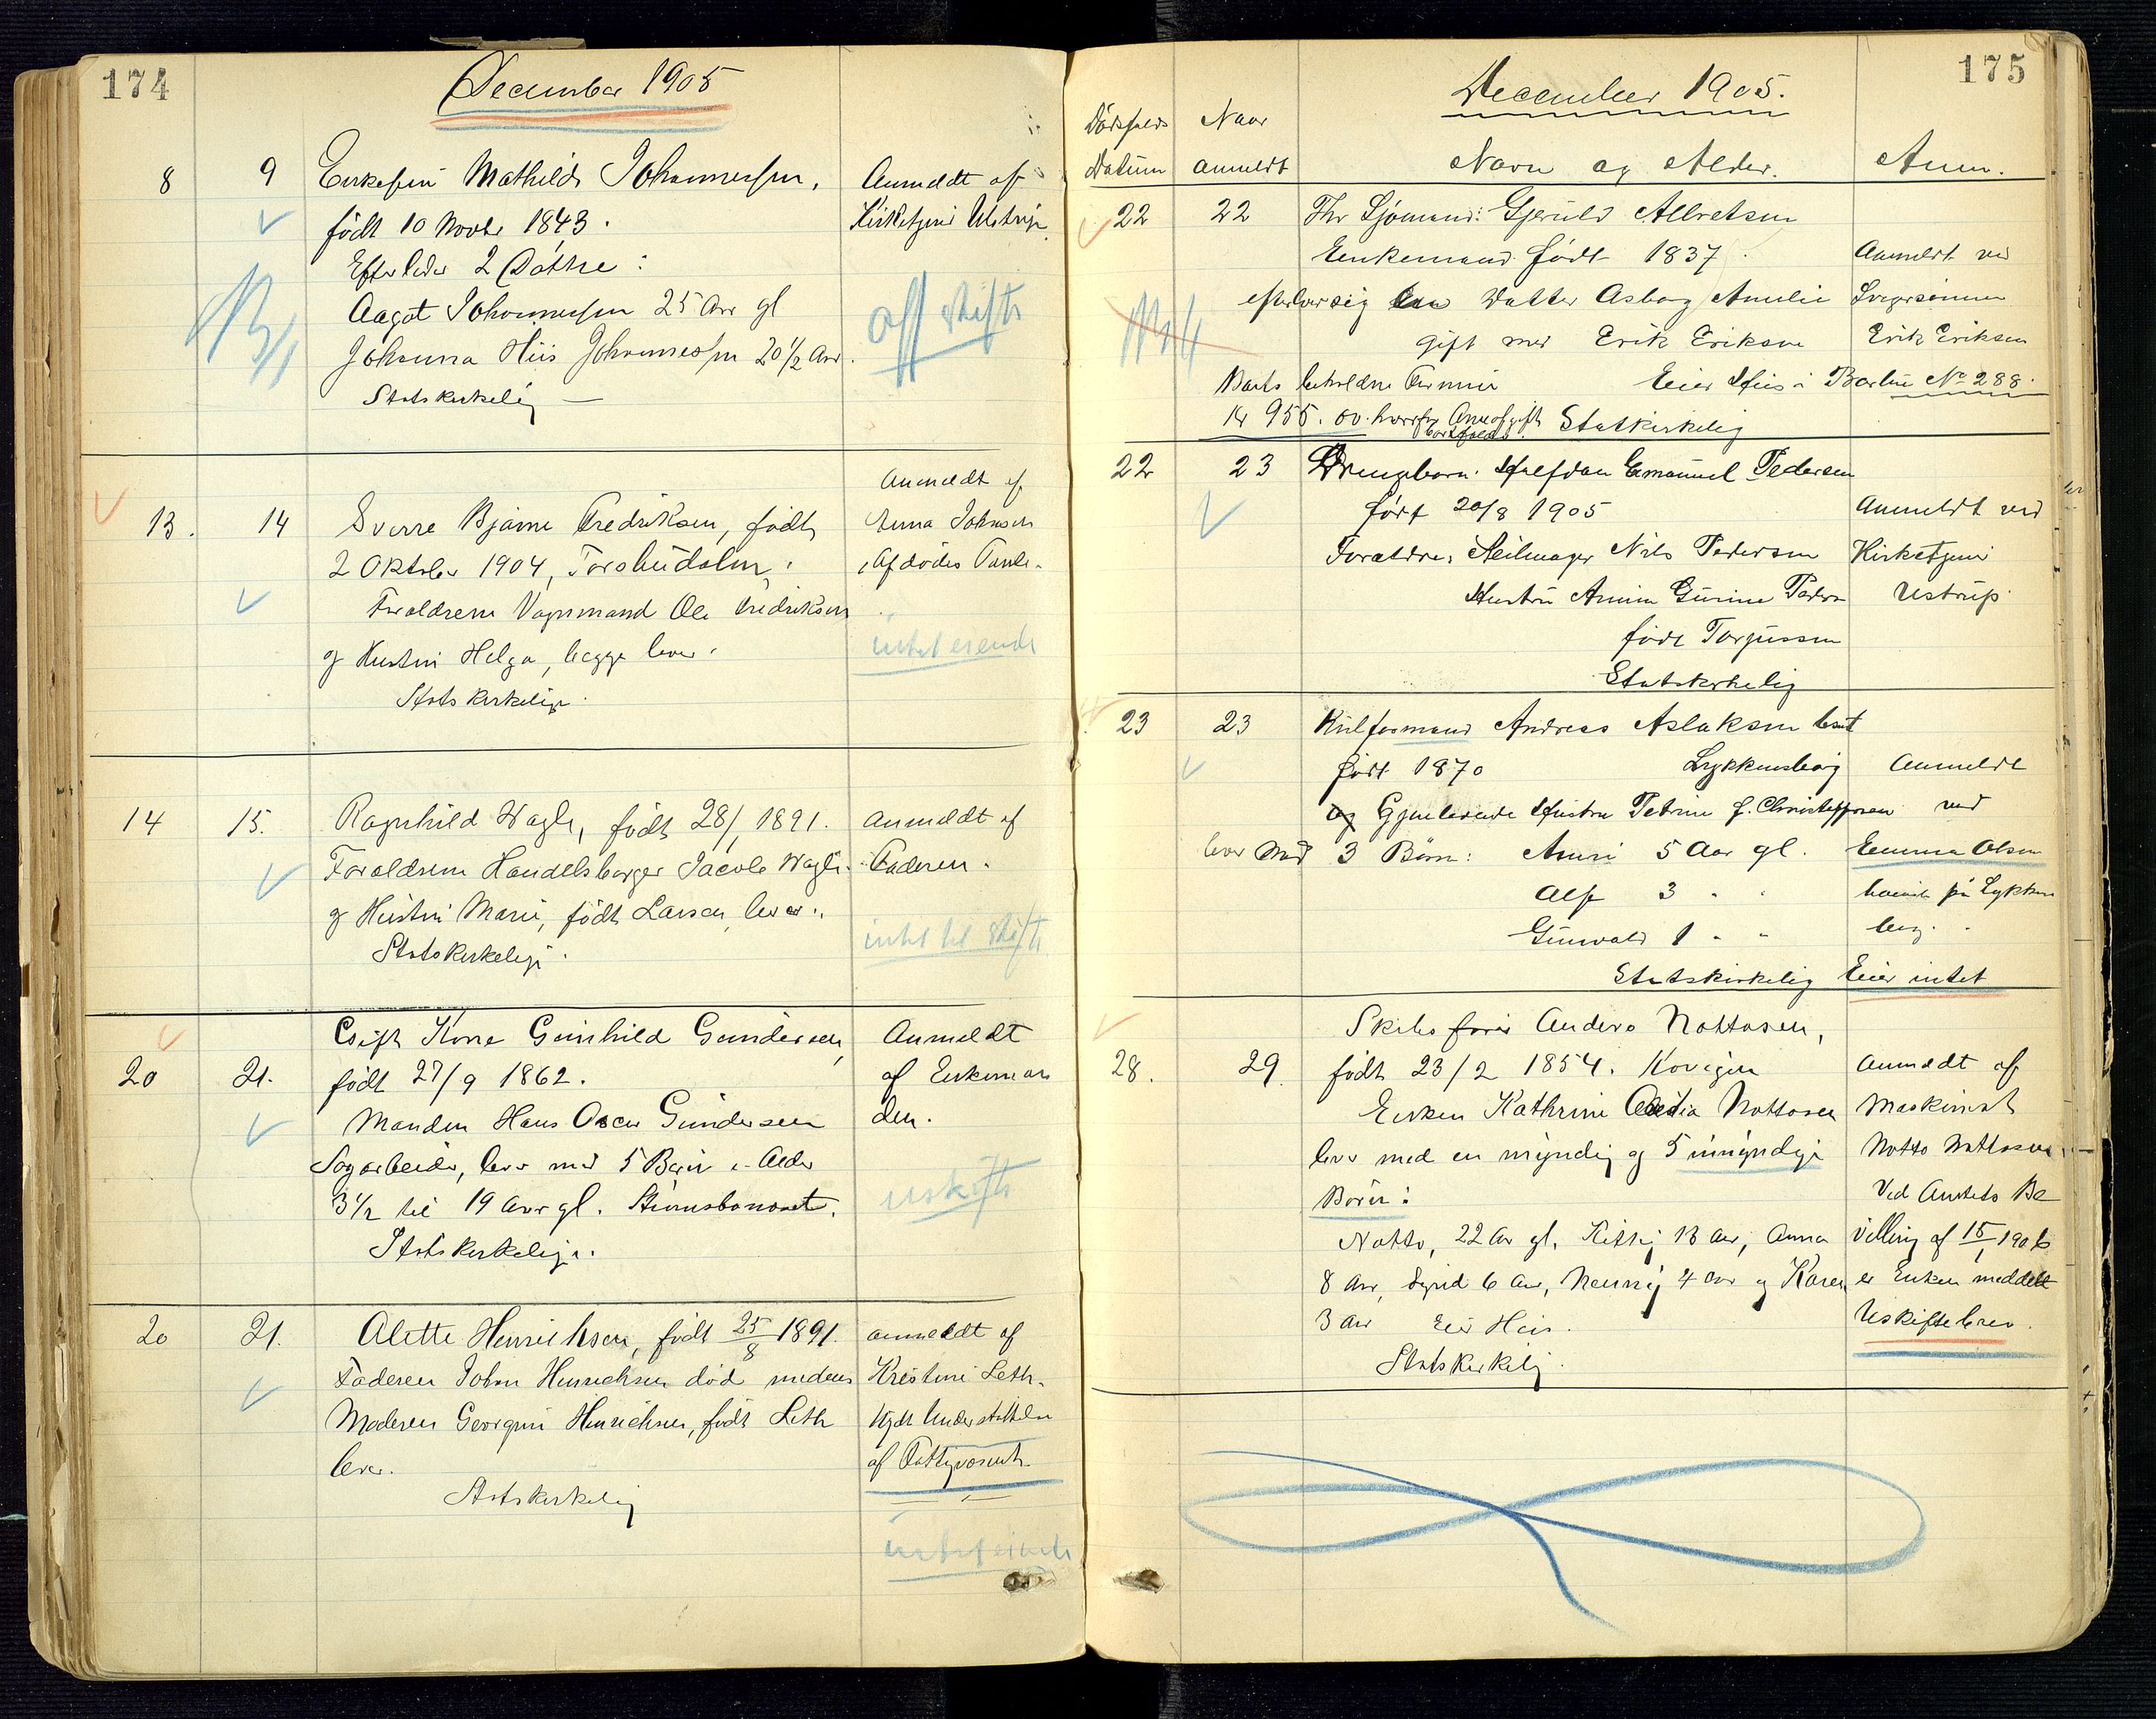 174
December 1905
8 9 Enkefru Mathilde Johannessen, Anmeldt af
født 10 Novbr 1843. Kirketjener Ustrup
Efterlader 2 Døttre:
Aagot Johannessen 25 Aar gl
Johanna Hiis Johannessen 20 1/2 Aar. off skifte
Statskirkelig —
Anmeldt af
13. 14 Sverre Bjarne Fredriksen, født Anna Johnsen
2 Oktober 1904, Afdødes Tante.
Forældrene Vognmand Ole Fredriksen
og Hustru Helga, begge lever. intet eiende
Statskirkelige.
14 15. Ragnhild Wagle, født 28/1 1891. Anmeldt af
Forældrene Handelsborger Jacob Wagle Faderen.
og Hustru Marie, født Larsen, lever.
Statskirkelige. intet til Skifte
Gift Kone Gunhild Gundersen, Anmeldt
20 21. født 27/9 1862. af Enkeman
Manden Hans Oscar Gundersen den.
Sagarbeider, lever med 5 Børn i Alder
3 1/2 til 19 Aar gl. uskifte
Statskirkelige.
20 21. Alette Henrichsen, født 25/8 1891. anmeldt af
Faderen Johan Henrichsen død medens Kristine Leth.
Moderen Georgine Henrichsen, født Leth Nydt Understøttelse
lever. af Fattigvæsenet.
Statskirkelig
intet eiende
175
December 1905.
Dødsfalds Naar
Datum anmeldt Navn og Alder. Anm.
22 22 Fhv Sjømand: Gjeruld Albretsen
Enkemand født 1837. Anmeldt ved
efterlader sig en Datter Asborg Amalie Svigersønnen
gift med Erik Eriksen Erik Eriksen
Boets beholdne Formue Eier Hus i Barbu No 288.
Kr 955.00 hvorfor Arveafgift bortfalder. Statskirkelig
22 23 Drengebarn: Halfdan Emanuel Pedersen
født 20/8 1905 Anmeldt ved
Forældre: Seilmager Nils Pedersen Kirketjener
Hustru Gurine Peders Ustrup
født Torjussen
Statskirkelig
23 23 Kulformand Andreas Aslaksen
født 1870 Lykkensborg Anmeldt
og Gjenlevende Hustru Petrine f. Christoffersen ved
lever med 3 Børn: 5 Aar gl. Emma Olsen
Alf 3 " " boende på Lykkens
Gunvald 1 " " berg.
Statskirkelig Eier intet
Skibsfører Anders Nottosen,
28. 29. født 23/2 1854. Anmeldt af
Enken Kathrine Nottosen Maskinist
lever med en myndig og 5 umyndige Notto Nottosen
Børn: Ved Amtets Be
Notto, 22 Aar gl, Kitty 13 Aar, Anna villing af 15/1 1906
8 Aar, Sigrid 6 Aar, Henry 4 Aar og Karen er Enken meddelt
3 Aar Eier Hus. Uskiftebrev.
Statskirkelig.